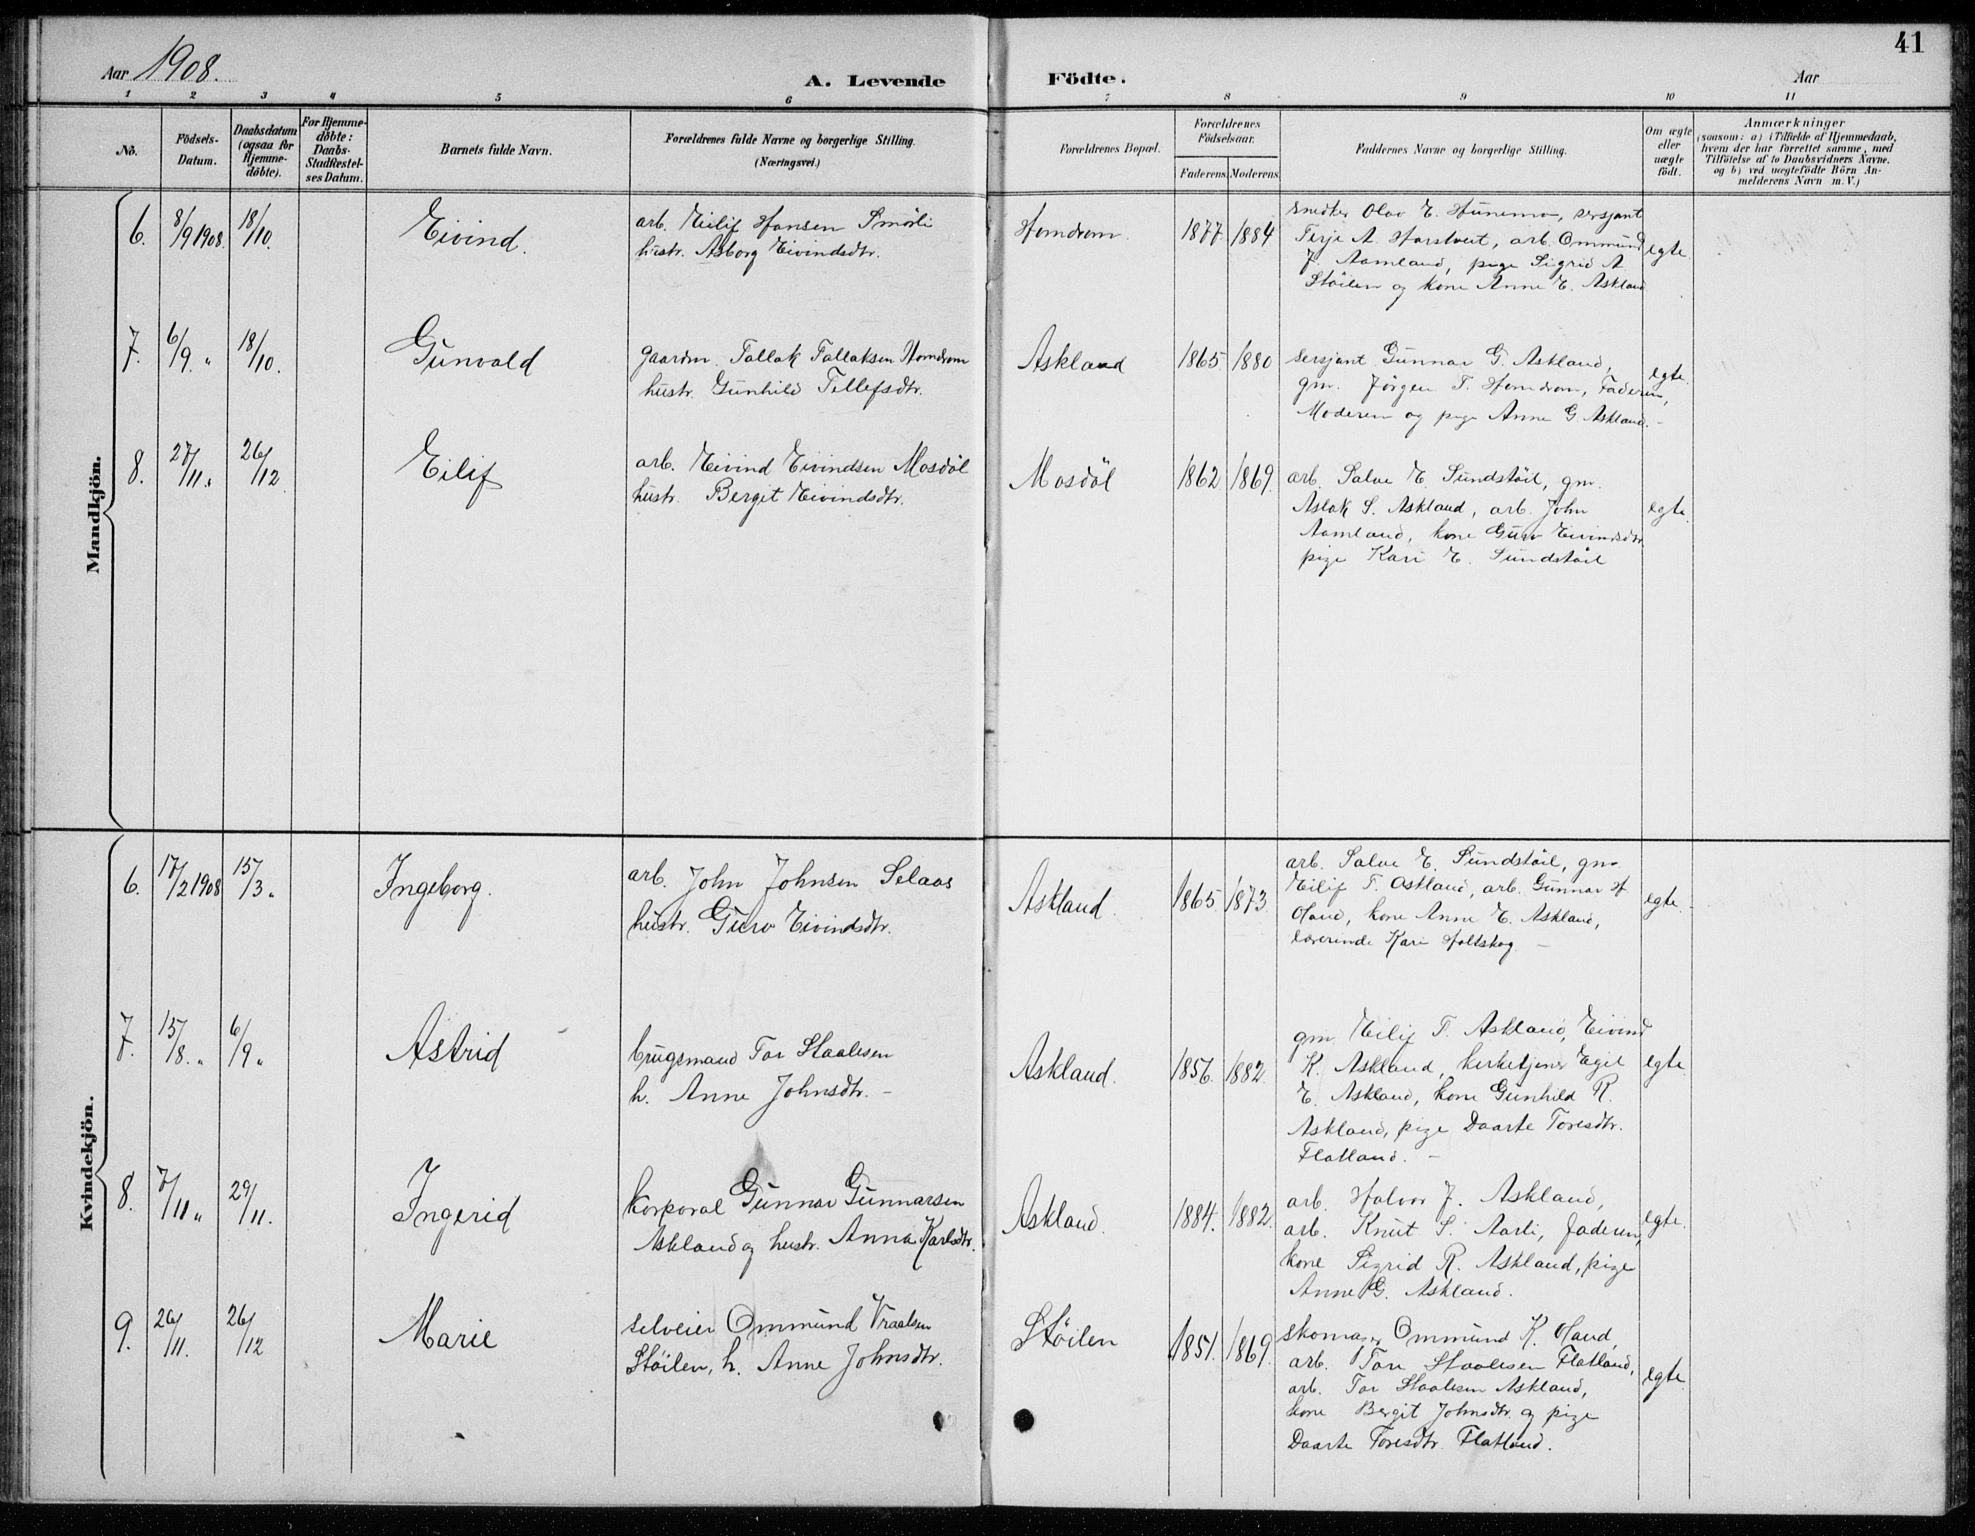 41
Aar 1908.
A. Levende Födte.
Aar
1 2 3 4 5 6 7 8 9 10 11
No.
Födsels-
Datum.
Daabsdatum
(ogsaa for
Hjemme-
döbte).
For Hjemme-
döbte:
Daabs-
Stadfæstel-
ses Datum.
Barnets fulde Navn.
Forældrenes fulde Navne og borgerlige Stilling.
(Næringsvei.)
Forældrenes Bopæl.
Forældrenes
Födselsaar.
Faderens. Moderens.
Faddernes Navne og borgerlige Stilling.
Om ægte
eller
uægte
født.
Anmærkninger
(saasom: a) i Tilfælde af Hjemmedaab,
hvem der har forrettet samme, med
Tilföielse af to Daabsvidners Navne.
og b) ved uægtefödte Börn An-
melderens Navn m. V.)
Mandkjön.
6. 8/9 1908. 18/10. Eivind.
arb. Eilif Hansen Smörli
hustr. Asborg Eivindsdtr.
Homdrom. 1877. 1884
snedker Olav E. Hunemo, sersjant
Terje A. Harstveit, arb. Ommund
J. Aamland, pige Sigrid A.
Stöilen og kone Anne E. Askland
egte
7. 6/9. " 18/10. Gunvald
gaardm. Tallak Tallaksen Homdrom
hustr. Gunhild Tellefsdtr.
Askland 1865. 1880
sersjant Gunnar G. Askland,
gm. Jörgen T. Homdrom, Faderen,
Moderen og pige Anne G. Askland. -
egte.
8. 27/11. " 26/12 Eilif
arb. Eivind Eivindsen Mosdöl
hustr. Bergit Eivindsdtr.
Mosdöl 1862 1869.
arb. Salve E. Sundstöil, gm.
Aslak S. Askland, arb. John
Aamland, kone Guro Eivindsdtr.
pige Kari E. Sundstöil
egte.
Kvindekjön.
6. 17/2 1908 15/3. " Ingeborg.
arb. John Johnsen Selaas
hustr. Guro Eivindsdtr.
Askland. 1865. 1873.
arb. Salve E. Sundstöil, gm.
Eilif T. Askland, arb. Gunnar H.
Oland, kone Anne E. Askland,
lærerinde Kari Holtskog -
egte.
7. 15/8. " 6/9 " Astrid
brugsmand Tor Staalesen
h. Anne Johnsdtr. -
Askland. 1856. 1882.
gm. Eilif T. Askland, Eivind
K. Askland, kirketjener Egil
E. Askland, kone Gunhild R.
Askland, pige Daarte Toresdtr.
Flatland. -
egte.
8. 7/11 " 29/11. Ingerid
korporal Gunnar Gunnarsen
Askland og hustr. Anna Karlsdtr.
Askland. 1884. 1882.
arb. Halvor J. Askland,
arb. Knut S. Aarli, Faderen,
kone Sigrid R. Askland, pige
Anne G. Askland.
egte.
9. 26/11. 26/12 Marie
selveier Ommund Vraalsen
Stöilen, h. Anne Johnsdtr.
Stöilen 1851. 1869.
skomager Ommund K. Oland,
arb. Tore Staalesen Flatland,
arb. Tor Staalesen Askland,
kone Bergit Johnsdtr. og pige
Daarte Toresdtr. Flatland.
egte.